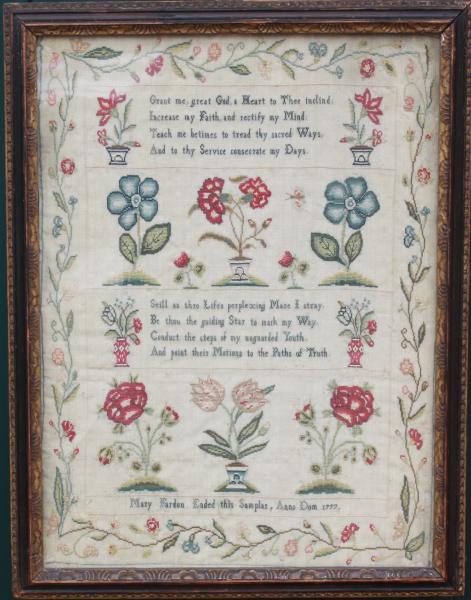 Grant me, great God, a Heart to Thee inclind;
Increase my Faith, and rectify my Mind.
Teach me betimes to tread thy sacred Ways;
And to thy Service consecrate my Days.
Still as thro Lifes perplexing Maze I stray;
Be thou the guiding Star to mark my Way.
Conduct the steps of my unguarded Youth.
And point their Motions to the Paths of Truth.
Mary Fardon Ended this Sampler, Anno Dom 1777.